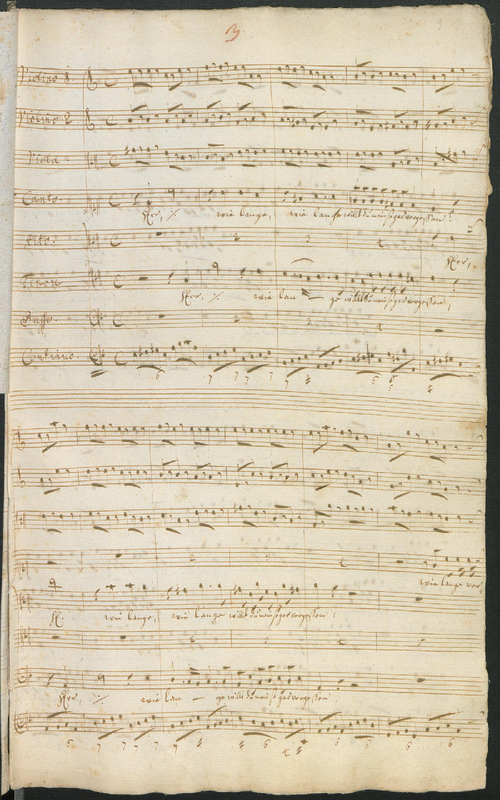 Violino 1
Violino 2
Viola
Canto.
Herr, wie lange, wie lange willt du mein so gar vergeßen?
Alto.
Herr,
Tenore
Herr, wie lan — ge willt du mein so gar vergeßen,
Basso.
Continuo.
6 7 7 7 7
wie lange ver-
wie lange, wie lange willt du mein so gar vergeßen,
Herr, wie lan — ge willt du mein so gar vergeßen
6 7 7 7 7 6 6 6